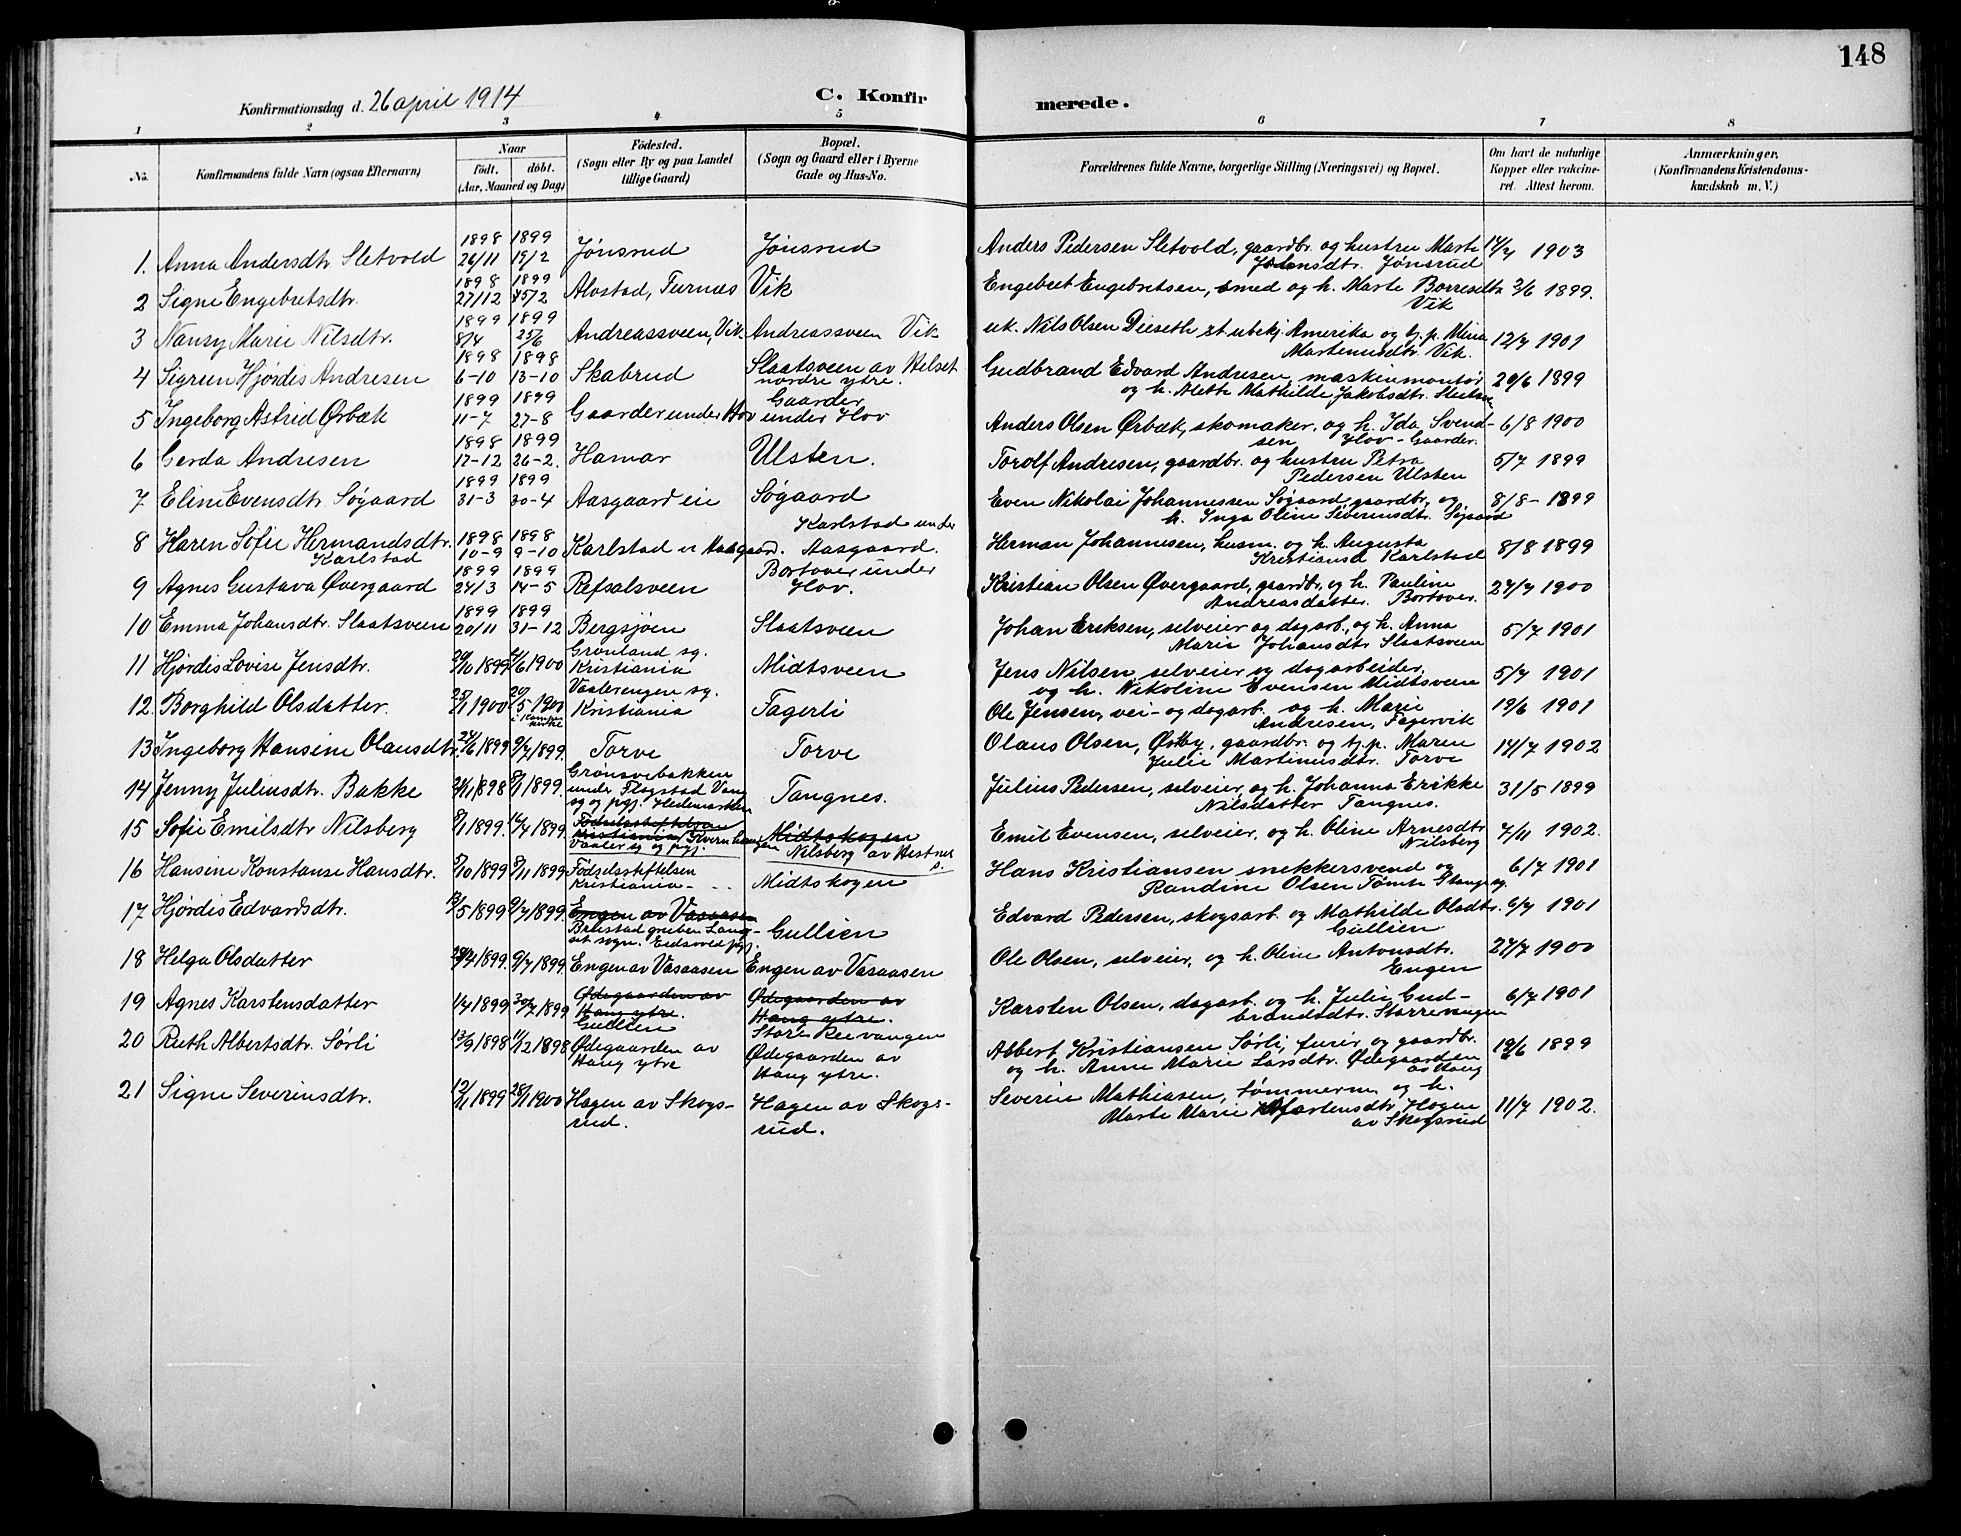 148
Konfirmationsdag d. 26 april 1914
C. Konfirmerede.
1 2 3 4 5 6 7 8
No. Konfirmandens fulde Navn (ogsaa Efternavn) Naar födt. döbt. (Aar, Maaned og Dag) Födested. (Sogn eller By og paa Landet tillige Gaard) Bopæl. (Sogn og Gaard eller i Byerne Gade og Hus-No. Forældrenes fulde Navne, borgerlige Stilling (Næringsvei) og Bopæl. Om havt de naturlige Kopper eller vakcineret. Attest herom. Anmærkninger. (Konfirmandens Kristendomskundskab m. V.)
1. Anna Andersdtr Sletvold 1898 26/11 1899 19/2 Jønsrud Jønsrud Anders Pedersen Sletvold, gaardbr. og hustru Marte Johnsdtr. Jønsrud 14/7 1903
2 Signe Engebretsdtr. 1898 27/12 1899 25/2 Alostad, Furnes Vik Engebret Engebretsen, smed og h. Marte Borresdtr Vik 2/6 1899.
3 Nansy Marie Nilsdtr. 1899 8/4 1899 25/6 Andreassveen, Vik. Andreassveen Vik uk. Nils Olsen Dieseth zt ubekj. Amerika og tj. p. Mina Martinusdtr. Vik. 12/7 1901
4 Sigrun Hjørdis Andresen 1898 6-10 1898 13-10 Skabrud Slaatsveen av Helset nordre ytre. Gudbrand Edvard Andresen, maskinmontør og h. Meth Mathilde Jakobsdtr. 20/6 1899
5 Ingeborg Astrid Ørbæk 1899 11-7 1899 27-8 Gaarder under Hov Gaarder under Hov Anders Olsen Ørbæk, skomaker, og h. Ida Svendsen Hov-Gaarder. 6/8 1900
6 Gerda Andresen 1898 17-12 1899 26-2. Hamar Ulsten. Torolf Andresen, gaardbr. og hustru Petra Pedersen Ulsten 5/7 1899
7 Eline Evensdtr. Søgaard 1899 31-3 1899 30-4 Aasgaard eie Søgaard Even Nikolai Johannessen Søgaard gaardbr. og h. Inga Oline Severinsdtr. Søgaard 8/8-1899
8 Karen Sofie Hermandsdtr. Karlstad 1898 10-9 1898 9-10 Karlstad u Aasgaard. Karlstad under Aasgaard. Herman Johannesen, husm. og h. Augusta Kristiansd Karlstad 8/8 1899
9 Agnes Gustava Øvergaard 1899 24/3 1899 14-5 Refsalsveen Bortover under Hov. Kristian Olsen Øvergaard, gaardbr. og h. Pauline Andreasdatter. Bortover. 27/7 1900
10 Emma Johansdtr. Slaatsveen 1899 20/11 1899 31-12 Bergsjøen Slaatsveen Johan Eriksen, selveier og dagarb., og h. Anna Marie Johansdtr Slaatsveen 5/7 1901
11 Hjørdis Lovise Jensdtr. 29/10 1899 4/6 1900 Grønland sg. Kristiania Midtsveen Jens Nilsen, selveier og dagarbeider, og h. Nikoline Evensen Midtsveen 5/7 1901
12. Borghild Olsdatter. 25/1 1900 20/5 1900 Vaalerengen sg. Kristiania Fagerli Ole Jensen, vei- og dagarb. og h. Marie Andresen, Fagervik 19/6 1901
13 Ingeborg Hansine Olausdtr. 24/6 1899 9/7 1899. Torve Torve Olaus Olsen, Østby, gaardbr. og tj.p. Maren Julie Martinusdtr. Torve 14/7 1902
14 Jenny Juliusdtr. Bakke 24/11 1898 8/1 1899. Grønsvebakken under Flagstad Vang sg og pgj. Hedemarken Tangnes. Julius Pedersen, selveier, og h. Johanna Erikke Nilsdatter Tangnes. 31/5 1899
15 Sofie Emilsdtr Nilsberg 8/1 1899. 14/4 1899. Födselsstiftelsen Kristiania Vaaler sg og pgj. Midtskogen Nilsberg av Hestnes Emil Evensen, selveier, og h. Oline Arnesdtr Nilsberg 7/11 1902.
16 Hansine Konstanse Hansdtr. 8/10 1899 8/11 1899 Födselsstiftelsen Kristiania- Midtskogen Hans Kristiansen snekkersvend og Randine Olsen Tomte Stange sg. 6/7 1901
17 Hjørdis Edvardsdtr. 13/5 1899 9/7 1899. Engen av Vasaasen Brustad gruben Langset sogn. Eidsvold pgj. Gullien Edvard Pedersen, skogsarb. og Mathilde Olsdtr. Gullien 6/7 1901
18 Helga Olsdatter 29/4 1899. 9/7 1899. Engen av Vasaasen Engen av Vasaasen Ole Olsen, selveier, og h. Oline Antonsdtr. Engen 27/7 1900
19 Agnes Karstensdatter 1/4 1899 30/7 1899 Ødegaarden av Hang ytre. Gullien Ødegaarden av Hang ytre. Store Reevangen Karsten Olsen, dagarb. og h. Julie Gudbrandsdtr. Storrevangen 6/7 1901
20 Ruth Albertsdtr. Sørli 13/9 1898 11/12 1898 Ødegaarden av Hang ytre Ødegaarden av Hang ytre. Albert Kristiansen Sørli, furer, og gaardbr. og h. Anne Marie Larsdtr. Ødegaarden av Hang 19/6 1899
21 Signe Severinsdtr. 12/11 1899 28/1 1900 Hagen av Skogsrud. Hagen av Skogsrud. Severin Mathiasen, tømmerm. og h. Marte Marie Martensdtr. Hagen av Skogsrud 11/7 1902.